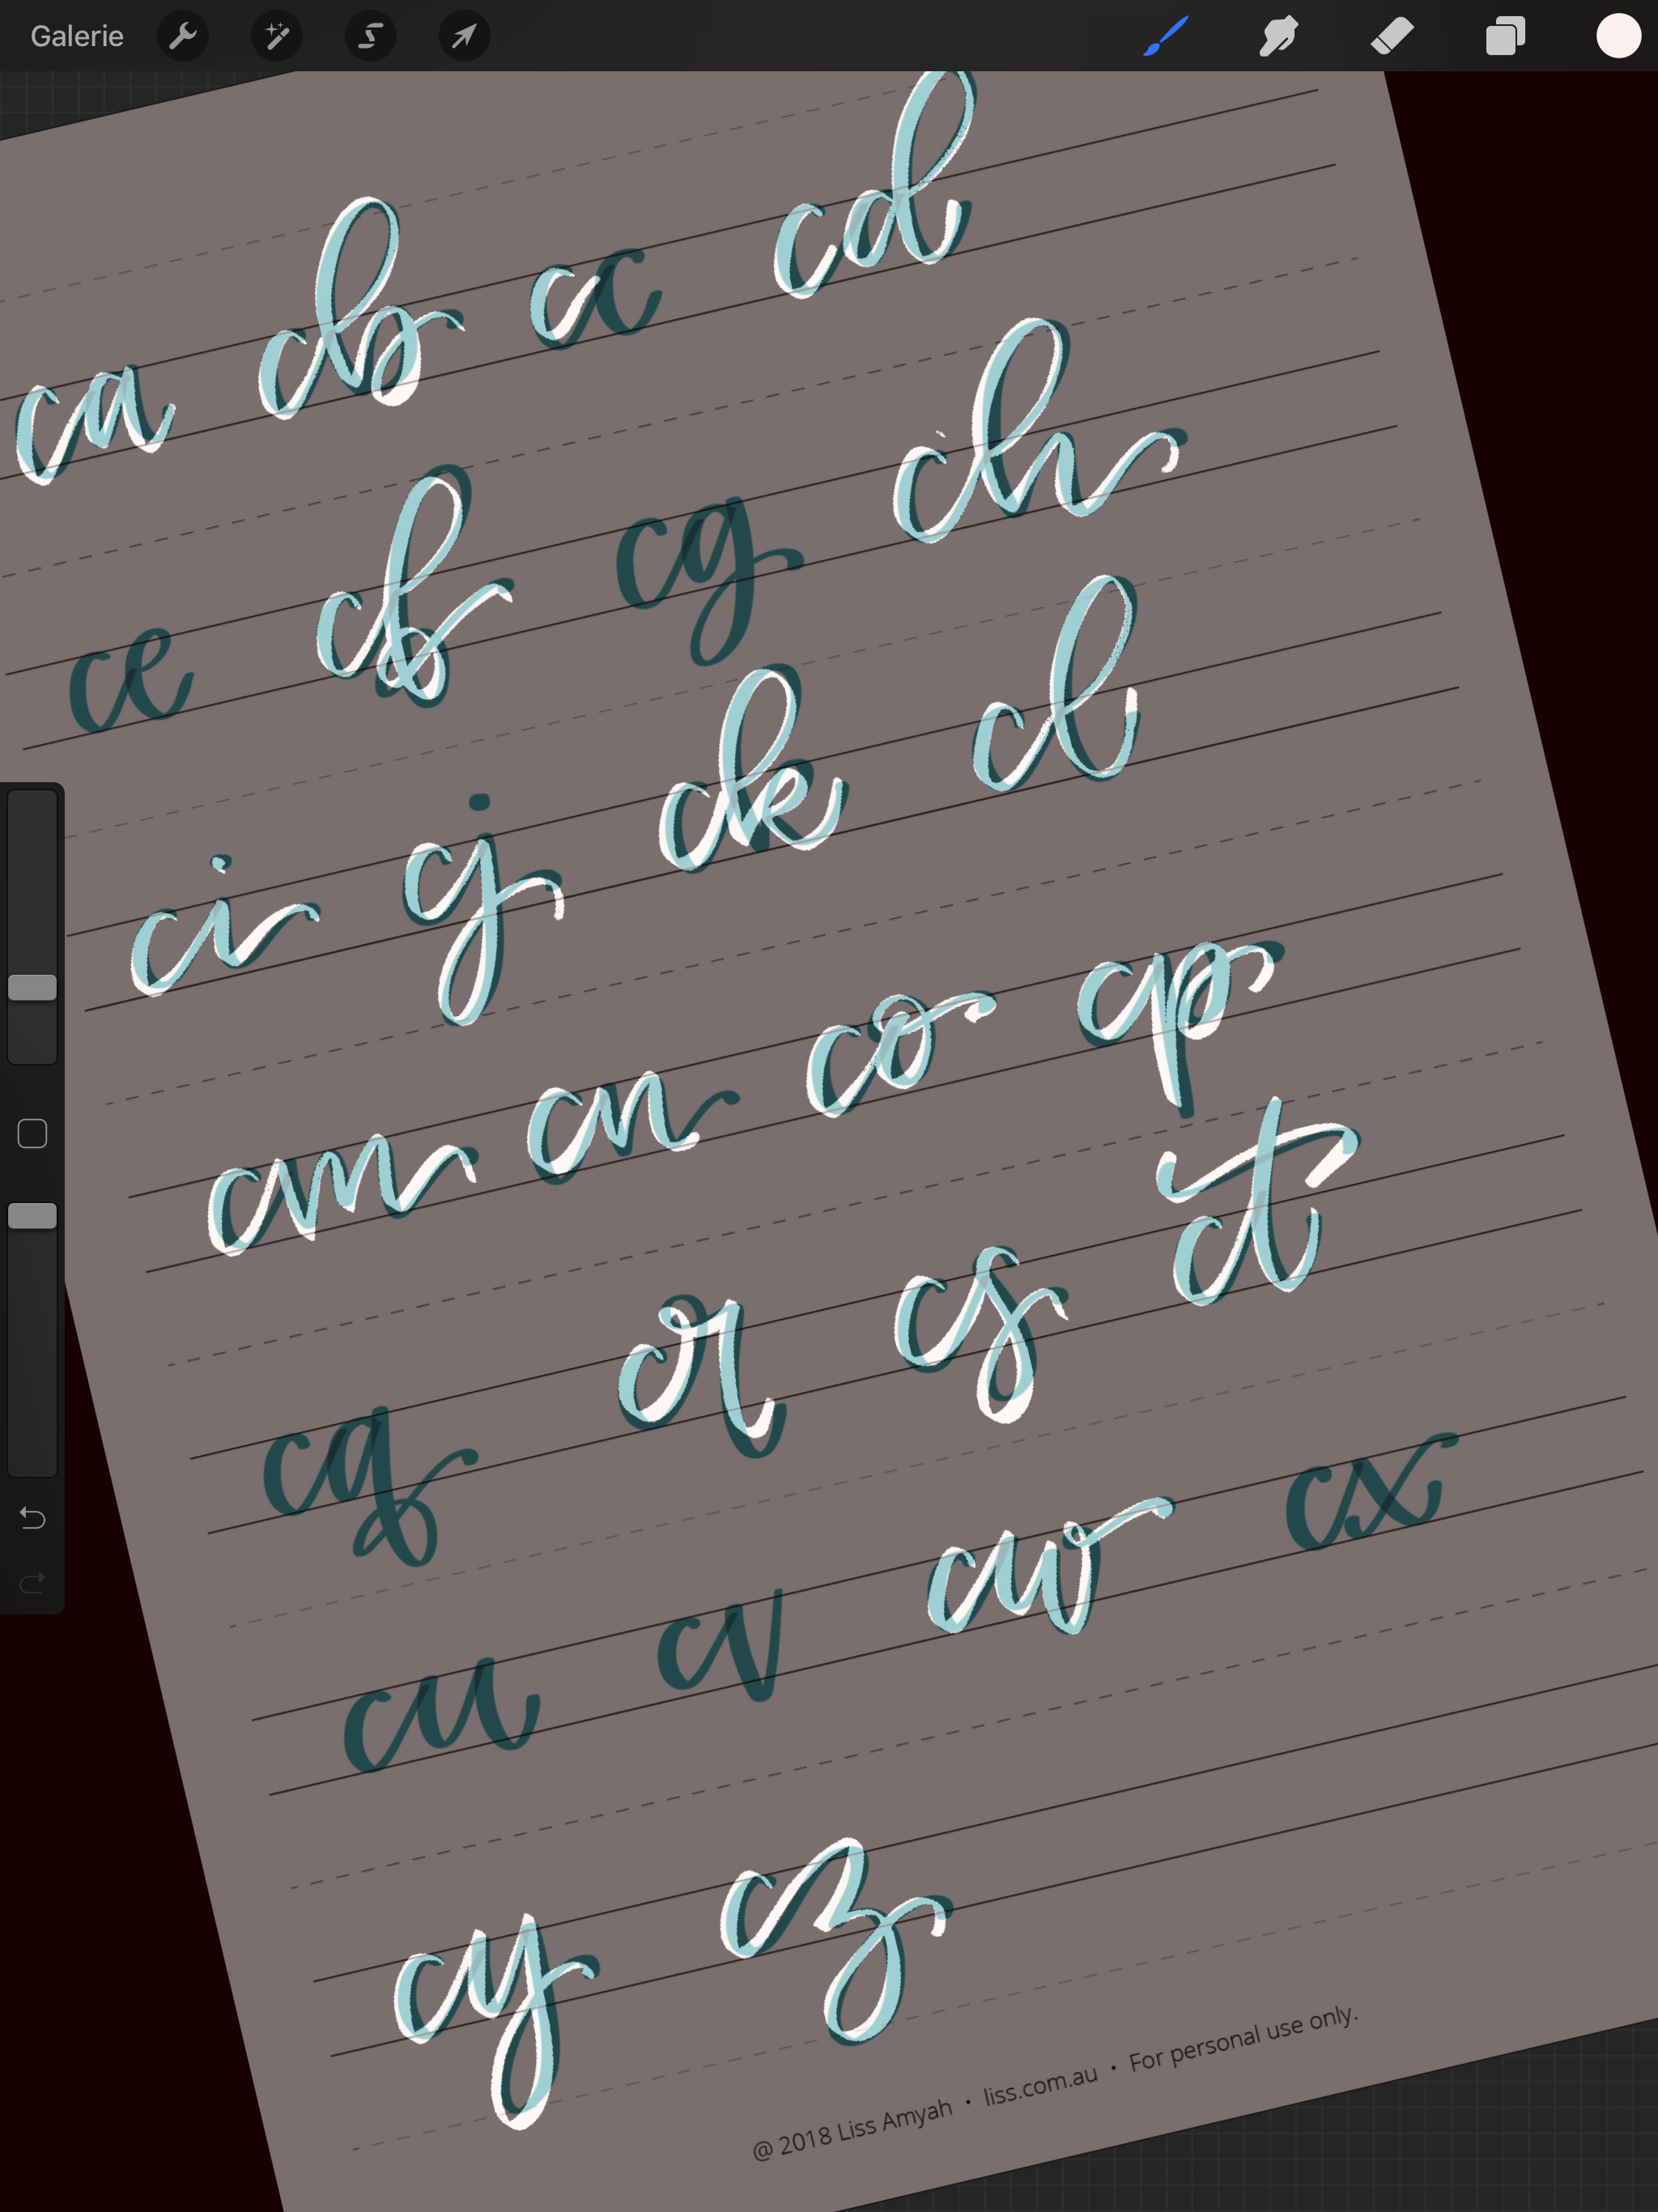 Galerie
ca cb cc cd
ce cf cg ch
ci cj ck cl
cm cn co cp
cq cr cs ct
cu cv cw cx
cy cz
@ 2018 Liss Amyah • liss.com.au • For personal use only.